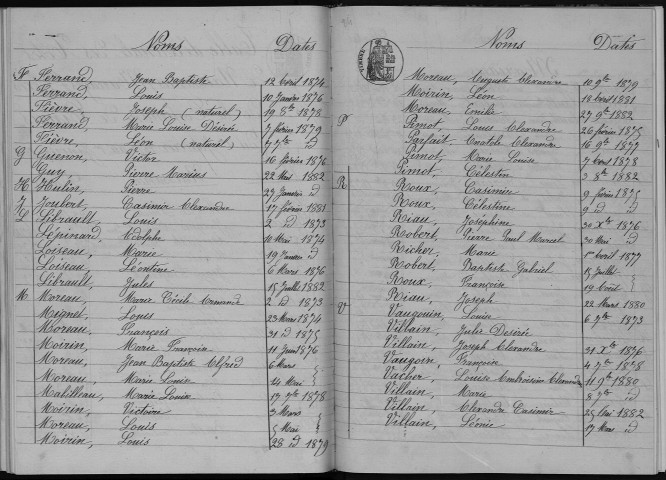 Noms Dates
F Ferrand, Jean Baptiste 12 Avril 1874
Ferrand, Louis 10 Janvier 1876
Fièvre, Joseph (naturel) 19 8bre 1878
Ferrand, Marie Louise Désirée 7 février 1879
Fièvre, Léon (naturel) 7 7bre id
G Guenon, Victor 16 février 1876
Guy, Pierre Marius 22 Mars 1882
H Hulin, Pierre 27 Janvier id
J Joubert, Casimir Alexandre 17 février 1881
L Librault, Louis 2 id 1873
Lépinard, Adolphe 10 Mai 1874
Loiseau, Marie 19 Janvier id
Loiseau, Léontine 6 Mars 1876
Librault, Jules 15 Juillet 1882
M Moreau, Marie Cécile 2 id 1873
Mignet, Louis 23 Mars 1874
Moreau, François 31 id 1875
Moirin, Marie Françoise 11 Juin 1876
Moreau, Jean Baptiste Alfred 6 Mars
Moreau, Marie Louise 24 Mai
Mabilleau, Marie Louise 17 9bre 1878
Moirin, Victoire 3 Mars
Moreau, Louis 5 Mai
Moirin, Louis 28 id 1879
Noms Dates
Moreau, Auguste Alexandre 10 9bre 1879
Moirin, Léon 18 Avril 1881
Moreau, Emile 27 9bre 1882
P Pimot, Louis Alexandre 26 février 1875
Parfait, Anatole Alexandre 16 9bre 1877
Pimot, Marie Louise 7 Avril 1878
Pimot, Célestin 3 8bre 1882
R Roux, Casimir 9 février 1875
Roux, Célestine 9 id id
Riau, Joséphine 30 Xbre 1876
Robert, Pierre Paul Marcel 30 Mai id
Richer, Marie 1er Avril 1877
Robert, Baptiste Gabriel 15 Juillet
Roux, Françoise 19 Août
Riau, Joseph 22 Mars 1880
V Vaugouin, Louis 6 7bre 1873
Villain, Julie Désirée
Villain, Joseph Alexandre 31 Xbre 1876
Vaugoin, Françoise 4 7bre 1878
Vacher, Louise Ambroisine 11 9bre 1880
Villain, Marie 8 7bre id
Villain, Alexandre Casimir 25 Mai 1882
Villain, Lénie 17 Mars id